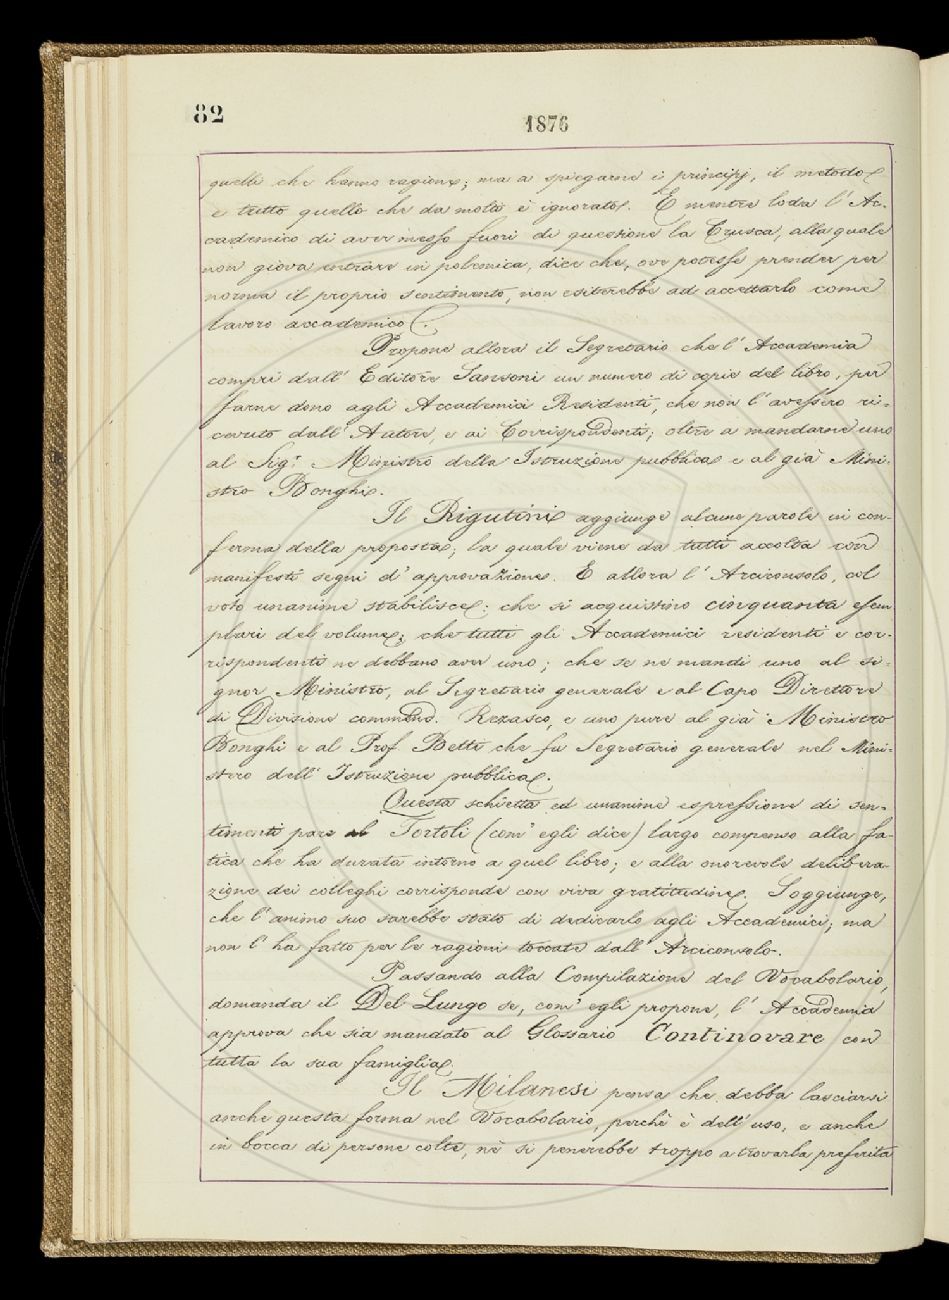 82
1876
quelli che hanno ragione; ma a spiegarne i principj, il metodo
e tutto quello che da molti è ignorato. E mentre loda l'Ac-
cademico di aver messo fuori di questione la Crusca, alla quale
non giova entrare in polemica, dice che, ove potesse prender per
norma il proprio sentimento, non esiterebbe ad accettarlo come
lavoro accademico.
Propone allora il Segretario che l'Accademia
compri dall'Editore Sansoni un numero di copie del libro, per
farne dono agli Accademici Residenti, che non l'avessero ri-
cevuto dall'Autore, e ai Corrispondenti; oltre a mandarne uno
al Sig.r Ministro della Istruzione pubblica e al già Mini-
stro Bonghi.
Il Rigutini aggiunge alcune parole in con-
ferma della proposta; la quale viene da tutti accolta con
manifesti segni d'approvazione. E allora l'Arciconsolo, col
voto unanime stabilisce: che si acquistino cinquanta esem
plari del volume; che tutti gli Accademici residenti e cor-
rispondenti ne debbano aver uno; che se ne mandi uno al si-
gnor Ministro, al Segretario generale e al Capo Direttore
di Divisione commend. Rezasco, e uno pure al già Ministro
Bonghi e al Prof Betti che fu Segretario generale nel Mini-
stero dell'Istruzione pubblica.
Questa schietta ed unanime espressione di sen-
timenti pare al Tortoli (com'egli dice) largo compenso alla fa-
tica che ha durata intorno a quel libro; e alla onorevole delibera-
zione dei colleghi corrisponde con viva gratitudine. Soggiunge,
che l'animo suo sarebbe stato di dedicarlo agli Accademici; ma
non l'ha fatto per le ragioni toccate dall'Arciconsolo.
Passando alla Compilazione del Vocabolario,
domanda il Del Lungo se, com'egli propone, l'Accademia
approva che sia mandato al Glossario Continovare con
tutta la sua famiglia.
Il Milanesi pensa che debba lasciarsi
anche questa forma nel Vocabolario, perchè è dell'uso, e anche
in bocca di persone colte, nè si penerebbe troppo a trovarla preferita